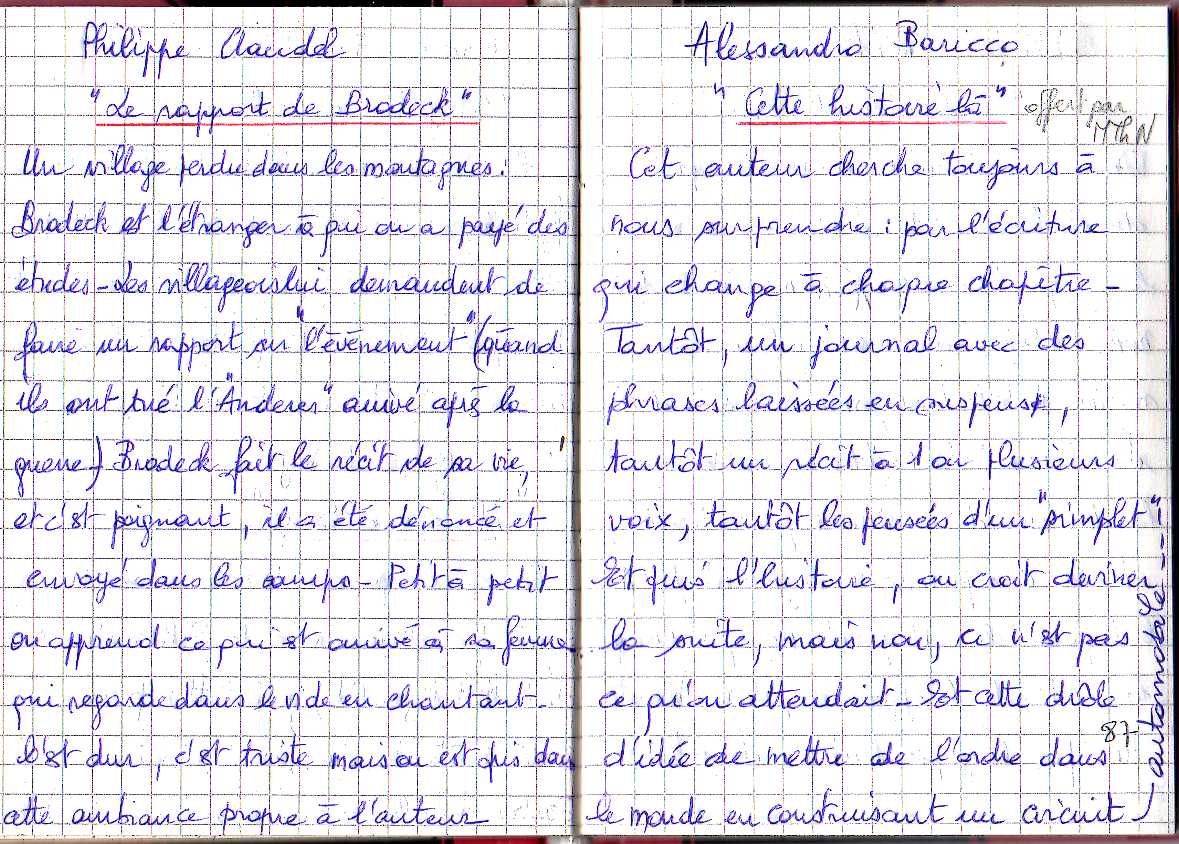 Philippe Claudel
"Le rapport de Brodeck"
Un village perdu dans les montagnes.
Brodeck est l'étranger à qui on a payé des
études - Les villageois lui demandent de
faire un rapport sur "l'évènement" (quand
ils ont tué l'"Anderer" arrivé après la
guerre) Brodeck fait le récit de sa vie,
et c'est poignant, il a été dénoncé et
envoyé dans les camps - Petit à petit
on apprend ce qui est arrivé à sa femme
qui regarde dans le vide en chantant -
C'est dur, c'est triste mais on est pris dans
cette ambiance propre à l'auteur
Alessandro Baricco
"Cette histoire là"
offert par
MThN
Cet auteur cherche toujours à
nous surprendre : par l'écriture
qui change à chaque chapître -
Tantôt, un journal avec des
phrases laissées en suspens,
tantôt un récit à 1 ou plusieurs
voix, tantôt les pensées d'un "simplet" -
Et puis l'histoire, on croit deviner
la suite, mais non, ce n'est pas
ce qu'on attendait - Et cette drôle
d'idée de mettre de l'ordre dans
le monde en construisant un circuit
automobile --
87-